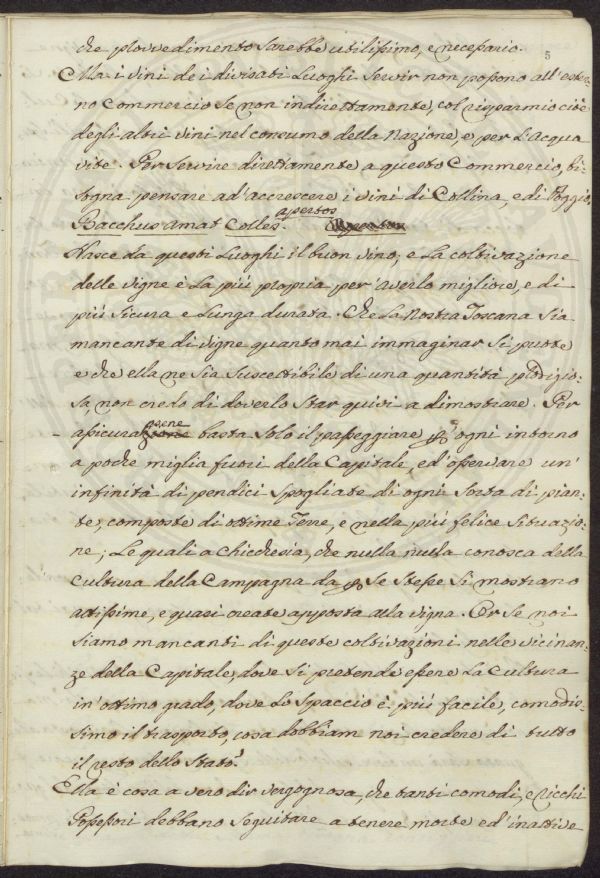 5
che plovvedimento sarebbe utilissimo, e necessario.
Ma i vini de i divisati Luoghi servir non possono all'ester-
no Commercio se non indirettamente, col risparmio cioè
degli altri vini nel consumo della Nazione, e per L'Acqua
vite. Per servire direttamente a questo Commercio, bi-
sogna pensare ad'accrescere i vini di Collina, e di Poggio,
Bacchus amat Colles. apertos
Nasce da questi Luoghi il buon vino; e La coltivazione
delle vigne è La più propria per averlo migliore, e di
più sicura e Lunga durata. Che La Nostra Toscana sia
mancante di vigne quanto mai immaginar si puote
e che ella ne sia suscettibile di una quantità prodigio-
sa non credo di doverlo star quivi a dimostrare. Per
assicurasene basta solo il passeggiare p ogni intorno
a poche miglia fuori della Capitale, ed'osservare un'
infinità di pendici spogliate di ogni sorta di pian-
te, composte di ottime Terre, e nella più felice situazio-
ne; Le quali a chicchesia, che nulla nulla conosca della
Cultura della Campagna da p se stesse si mostrano
attissime, e quasi create apposta alla vigna. Or se noi
siamo mancanti di queste coltivazioni nelle vicinan-
ze della Capitale, dove si pretende essere La Cultura
in'ottimo grado, dove Lo spaccio è più facile, comodis-
simo il trasporto, cosa dobbiam noi credere di tutto
il resto dello Stato?
Ella è cosa a vero dir vergognosa, che tanti comodi, e ricchi
Possessori debbano seguitare a tenere morte ed'inattive